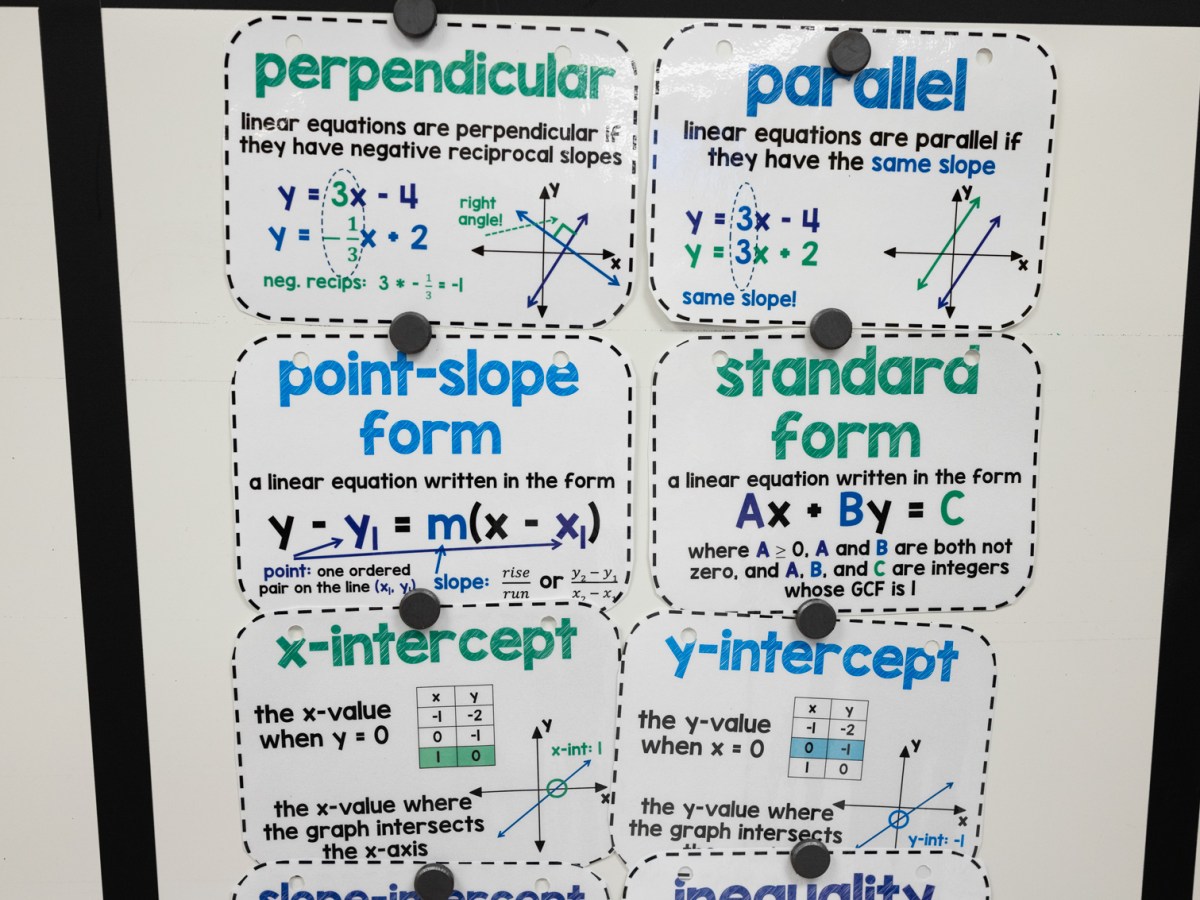 perpendicular
linear equations are perpendicular if
they have negative reciprocal slopes
y = 3x - 4
y = -1/3x + 2
neg. recips: 3 * -1/3 = -1
right
angle!
y
x
parallel
linear equations are parallel if
they have the same slope
y = 3x - 4
y = 3x + 2
same slope!
y
x
point-slope
form
a linear equation written in the form
y - y₁ = m(x - x₁)
point: one ordered
pair on the line (x₁, y₁)
slope: rise/run or y₂ - y₁/x₂ - x₁
standard
form
a linear equation written in the form
Ax + By = C
where A ≥ 0, A and B are both not
zero, and A, B, and C are integers
whose GCF is 1
x-intercept
the x-value
when y = 0
x y
-1 -2
0 -1
1 0
the x-value where
the graph intersects
the x-axis
y
x-int: 1
x
y-intercept
the y-value
when x = 0
x y
-1 -2
0 -1
1 0
the y-value where
the graph intersects
y
x
y-int: -1
slope-intercept
inequality